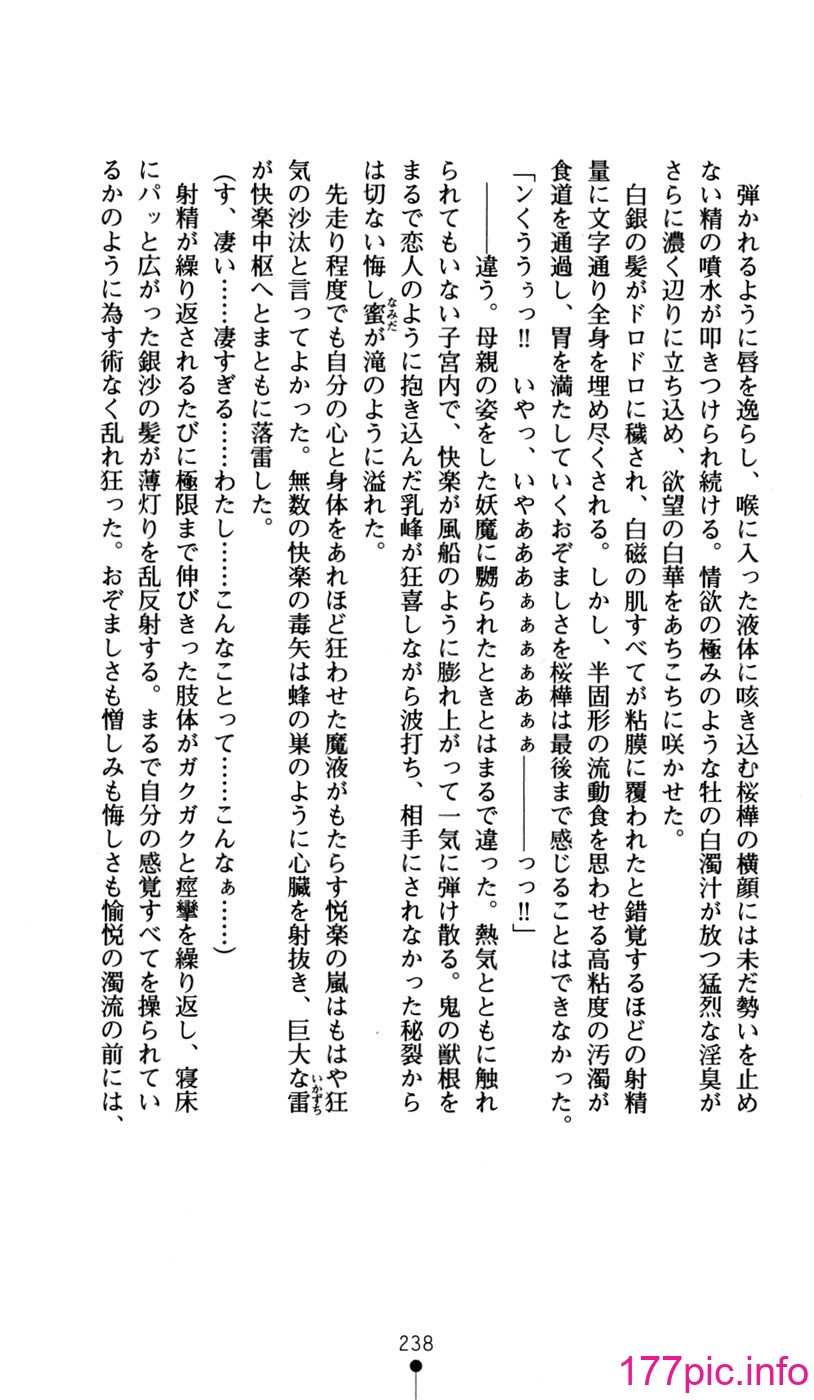 弾かれるように唇を逸らし、喉に入った液体に咳き込む桜樺の横顔には未だ勢いを止め
ない精の噴水が叩きつけられ続ける。情欲の極みのような牡の白濁汁が放つ猛烈な淫臭が
さらに濃く辺りに立ち込め、欲望の白華をあちこちに咲かせた。
白銀の髪がドロドロに穢され、白磁の肌すべてが粘膜に覆われたと錯覚するほどの射精
量に文字通り全身を埋め尽くされる。しかし、半固形の流動食を思わせる高粘度の汚濁が
食道を通過し、胃を満たしていくおぞましさを桜樺は最後まで感じることはできなかった。
「ンくううぅっ!! いやっ、いやあああぁぁぁぁあぁぁ――――っっ!!」
――違う。母親の姿をした妖魔に嬲られたときとはまるで違った。熱気とともに触れ
られてもいない子宮内で、快楽が風船のように膨れ上がって一気に弾け散る。鬼の獣根を
まるで恋人のように抱き込んだ乳峰が狂喜しながら波打ち、相手にされなかった秘裂から
は切ない悔し蜜（なみだ）が滝のように溢れた。
先走り程度でも自分の心と身体をあれほど狂わせた魔液がもたらす悦楽の嵐はもはや狂
気の沙汰と言ってよかった。無数の快楽の毒矢は蜂の巣のように心臓を射抜き、巨大な雷（いかずち）
が快楽中枢へとまともに落雷した。
(す、凄い……凄すぎる……わたし……こんなことって……こんなぁ……)
射精が繰り返されるたびに極限まで伸びきった肢体がガクガクと痙攣を繰り返し、寝床
にパッと広がった銀沙の髪が薄灯りを乱反射する。まるで自分の感覚すべてを操られてい
るかのように為す術なく乱れ狂った。おぞましさも憎しみも悔しさも愉悦の濁流の前には、
238
177pic.info